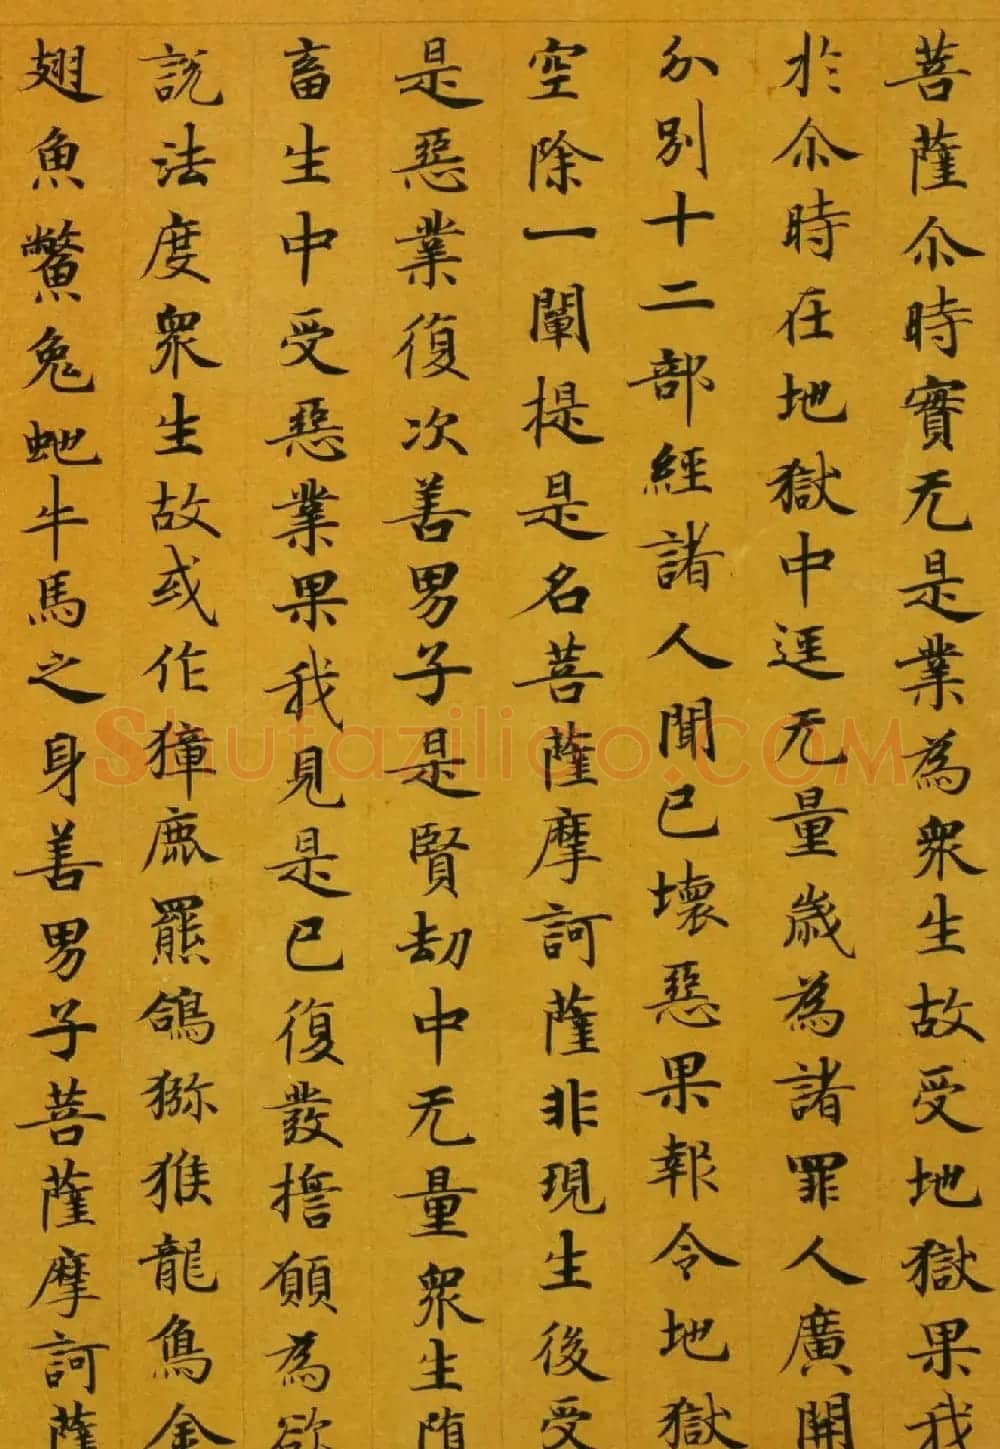 菩薩尒時實无是業為衆生故受地獄果我
於尒時在地獄中逕无量歲為諸罪人廣開
分別十二部經諸人聞已壞惡果報令地獄
空除一闡提是名菩薩摩訶薩非現生後受
是惡業復次善男子是賢劫中无量衆生堕
畜生中受惡業果我見是已復發擔願為欲
說法度衆生故或作獐鹿羆鴿猕猴龍鳥金
翅魚鱉兔虵牛馬之身善男子菩薩摩訶薩
Shufaziliao.COM